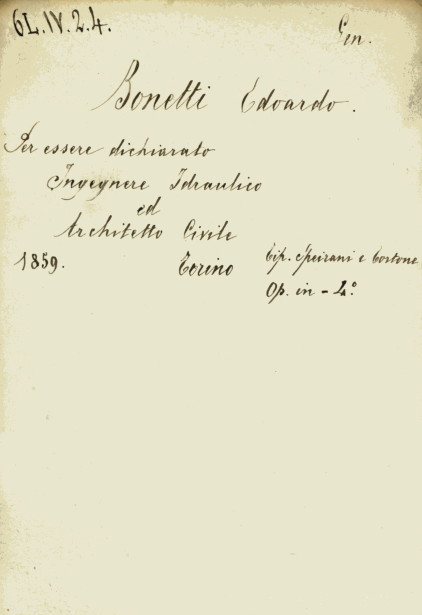 6L.IV.2.4.
Gen.
Bonetti Edoardo.
Per essere dichiarato
Ingegnere Idraulico
ed
Architetto Civile
1859. Torino Tip. Speirani e Tortone
Op. in - 4.°